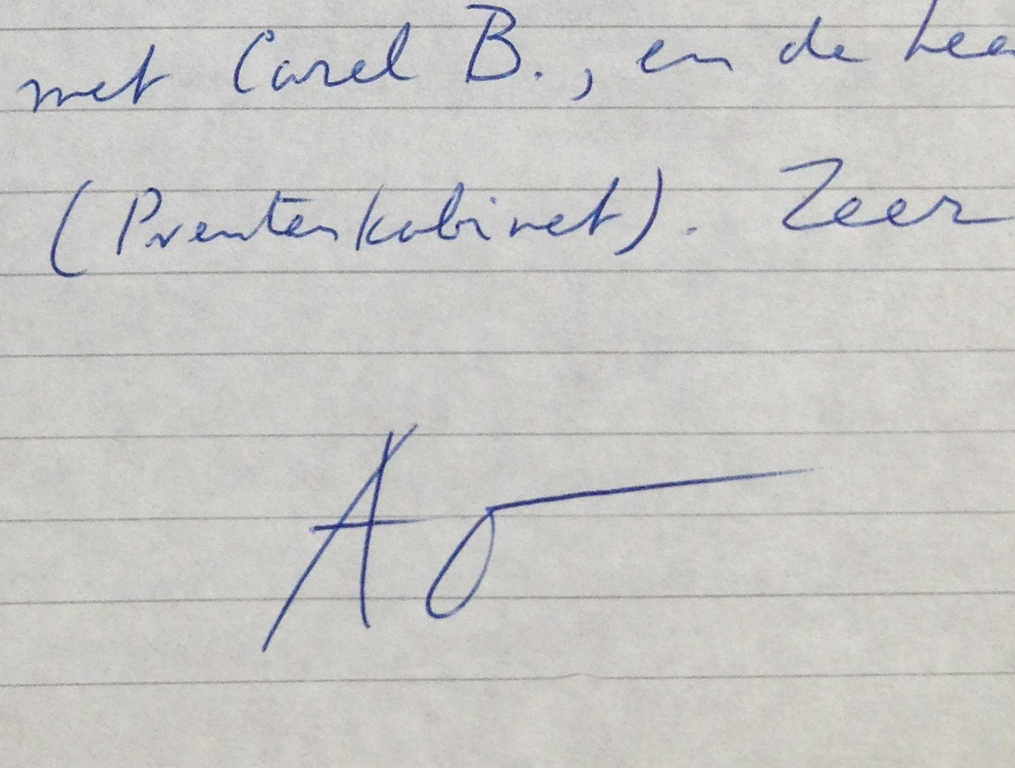 met Carel B., en de
(Prentenkabinet). Zeer